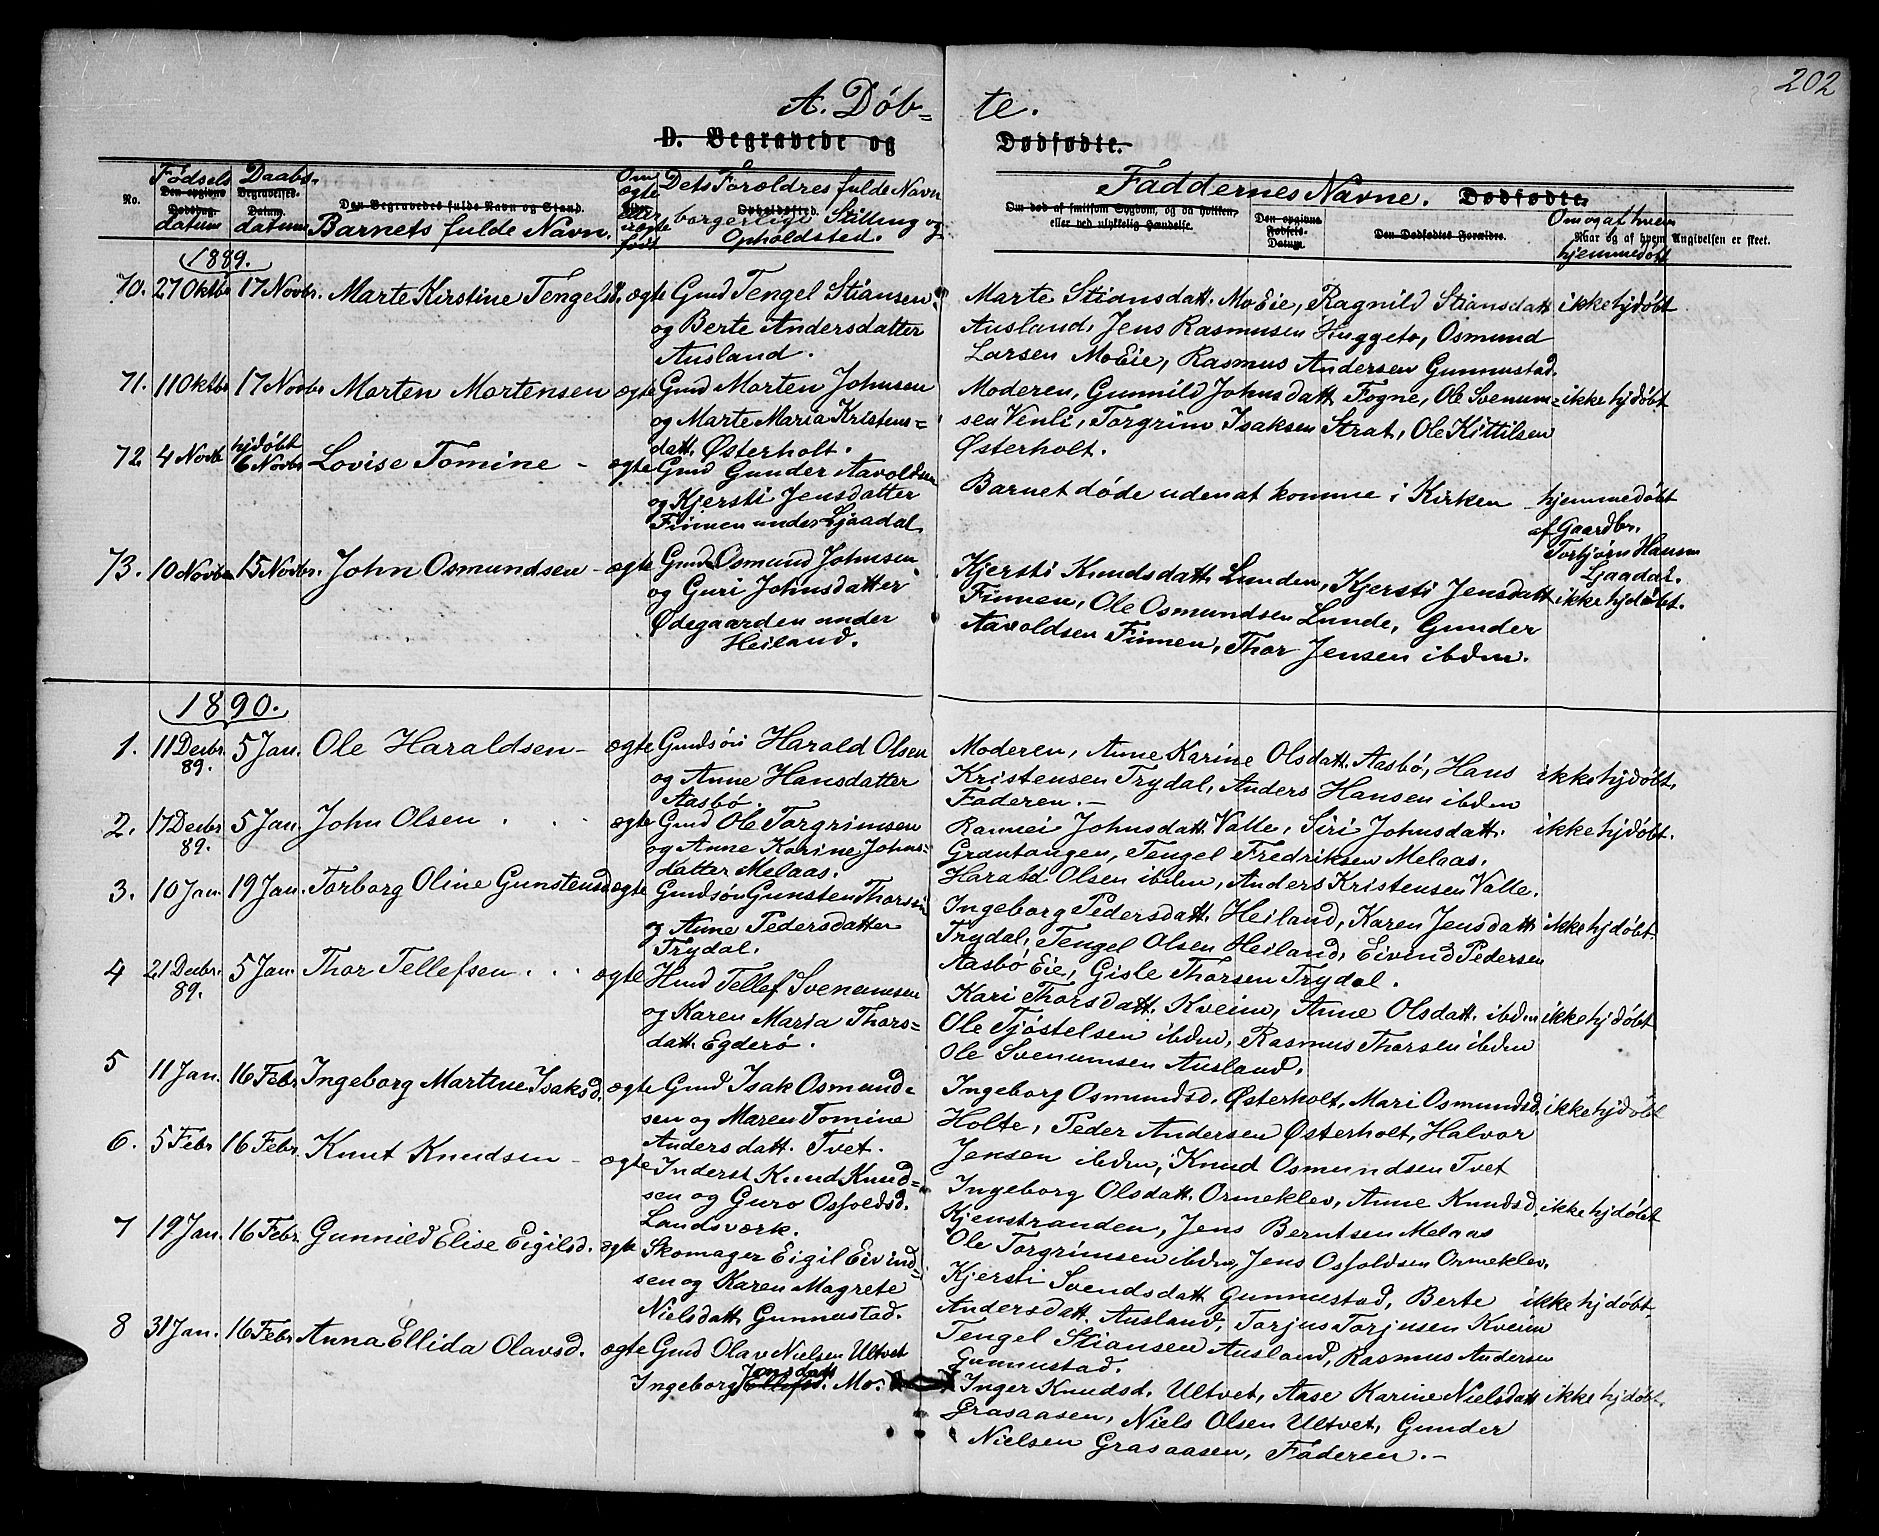 202
A. Døb= te.
D. Begravede og Dødfødte.
No.
Fødsels datum
Den opgivne Dødsdag.
Daabs datum
Begravelses-Datum.
Den Begravedes fulde Navn og Stand.
Barnets fulde Navn.
Om ægte eller uægte født
Dets Forældres fulde Navn
Opholdssted.
borgerlige Stilling og
Opholdsted.
Faddernes Navne. Dødfødte.
Om død af smitsom Sygdom, og da hvilken,
eller ved ulykkelig Hændelse.
Den opgivne Fødsels-Datum.
Den Dødfødtes Forældre.
Om og af hvem
Naar og af hvem Angivelsen er skeet.
hjemmedøbt
1889.
70. 27 Oktbr 17 Novbr. Marte Kirstine Tengelsd. ægte Gmd Tengel Stiansen
og Berte Andersdatter
Ausland.
Marte Stiansdatt. Mo Eie, Ragnild Stiansdatt. ikke hjdøbt
Ausland, Jens Rasmusen Huggeto, Osmund
Larsen Mo Eie, Rasmus Andersen Gunnustad.
71. 11 Oktbr 17 Novbr Morten Mortensen ægte Gmd Morten Johnsen
og Marte Maria Kristens=
datt. Østerholt.
Moderen, Gunnild Johnsdatt. Fogne, Ole Svenum= ikke hjdøbt
sen Venli, Torgrim Isaksen Strat, Ole Kittilsen
Østerholt.
72. 4 Novb hjdøbt 6 Novbr Lovise Tomine - ægte Gmd Gunder Aavoldsen
og Kjersti Jensdatter
Finnen under Ljaadal
Barnet døde uden at komme i Kirken hjemmedøbt
af Gaardbr.
Torbjørn Hansen
Ljaadal.
73. 10 Novbr 15 Novbr. John Osmundsen - ægte Gmd Osmund Johnsen
og Guri Johnsdatter
Ødegaarden under
Heiland.
Kjersti Knudsdatt. Lunden, Kjersti Jensdatt ikke hjdøbt.
Finnen, Ole Osmundsen Lunde, Gunder
Aavoldsen Finnen, Thor Jensen ibdm.
1890.
1. 11 Decbr. 89. 5 Jan. Ole Haraldsen - ægte Gmdsøn Harald Olsen
og Anne Hansdatter
Aasbø.
Moderen, Anne Karine Olsdatt. Aasbø, Hans ikke hjdøbt.
Kristensen Trydal, Anders Hansen ibdm
Faderen. -
2. 17 Decbr 89. 5 Jan. John Olsen . . . ægte Gmd Ole Torgrimsen
og Anne Karine Johns=
datter Melaas.
Rannei Johnsdatt. Valle, Siri Johnsdatt. ikke hjdøbt.
Grøntangen, Tengel Fredriksen Melaas.
Harald Olsen ibdm, Anders Kristensen Valle.
3. 10 Jan. 19 Jan. Torborg Oline Gunstensd ægte Gmdsøn Gunsten Thorsen
og Anne Pedersdatter
Trydal.
Ingeborg Pedersdatt. Heiland, Karen Jensdatt. ikke hjdøbt.
Trydal, Tengel Olsen Heiland, Eivind Pedersen
Aasbø Eie, Gisle Thorsen Trydal.
4 21 Decbr. 89. 5 Jan. Thor Tellefsen . . . ægte Hmd Tellef Svenumsen
og Karen Maria Thors=
datt. Egderø.
Kari Thorsdatt. Kveim, Anne Olsdatt. ibdm ikke hjdøbt
Ole Tjøstelsen ibdm, Rasmus Thorsen ibdm
Ole Svenumsen Ausland.
5 11 Jan. 16 Febr. Ingeborg Martine Isaksd. ægte Gmd Isak Osmund=
sen og Maren Tomine
Andersdatt. Tvet.
Ingeborg Osmundsd. Østerholt, Mari Osmundsd. ikke hjdøbt
Holte, Peder Andersen Østerholt, Halvor
Jensen ibdm, Knud Osmundsen Tvet
6. 5 Febr 16 Febr. Knut Knudsen - ægte Inderst Knud Knud=
sen og Guro Osfoldsd.
Landsværk.
Ingeborg Olsdatt. Ormeklev, Anne Knudsd. ikke hjdøbt
Kjenstranden, Jens Berntsen Melaas
Ole Torgrimsen ibdm, Jens Osfoldsen Ormeklev.
7 19 Jan. 16 Febr. Gunnild Elise Eigilsd. ægte Skomager Eigil Eivind=
sen og Karen Magrete
Nielsdatt. Gunnustad.
Kjersti Svendsdatt. Gunnustad, Berte ikke hjdøbt.
Andersdatt. Ausland, Torjus Torjusen Kveim
Tengel Stiansen Ausland, Rasmus Andersen
Gunnustad.
8 31 Jan. 16 Febr Anna Ellida Olavsd. ægte Gmd Olav Nielsen Ultvet
Jensdatt
Ingeborg Ellefsd. Mo.
Inger Knudsd. Ultvet, Aase Karine Nielsdatt ikke hjdøbt.
Grasaasen, Niels Olsen Ultvet, Gunder
Nielsen Grasaasen, Faderen. -